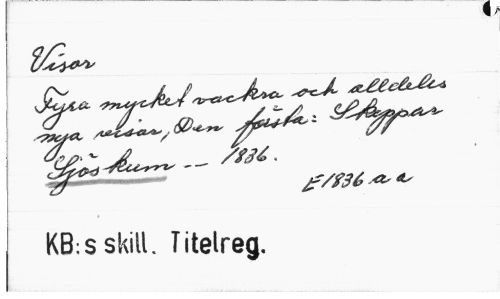 Visor
Fyra mycket vackra och alldeles
nya visor, Den första: Skeppar
Sjöskum -- 1836.
E1836 a a
KB:s skill. Titelreg.